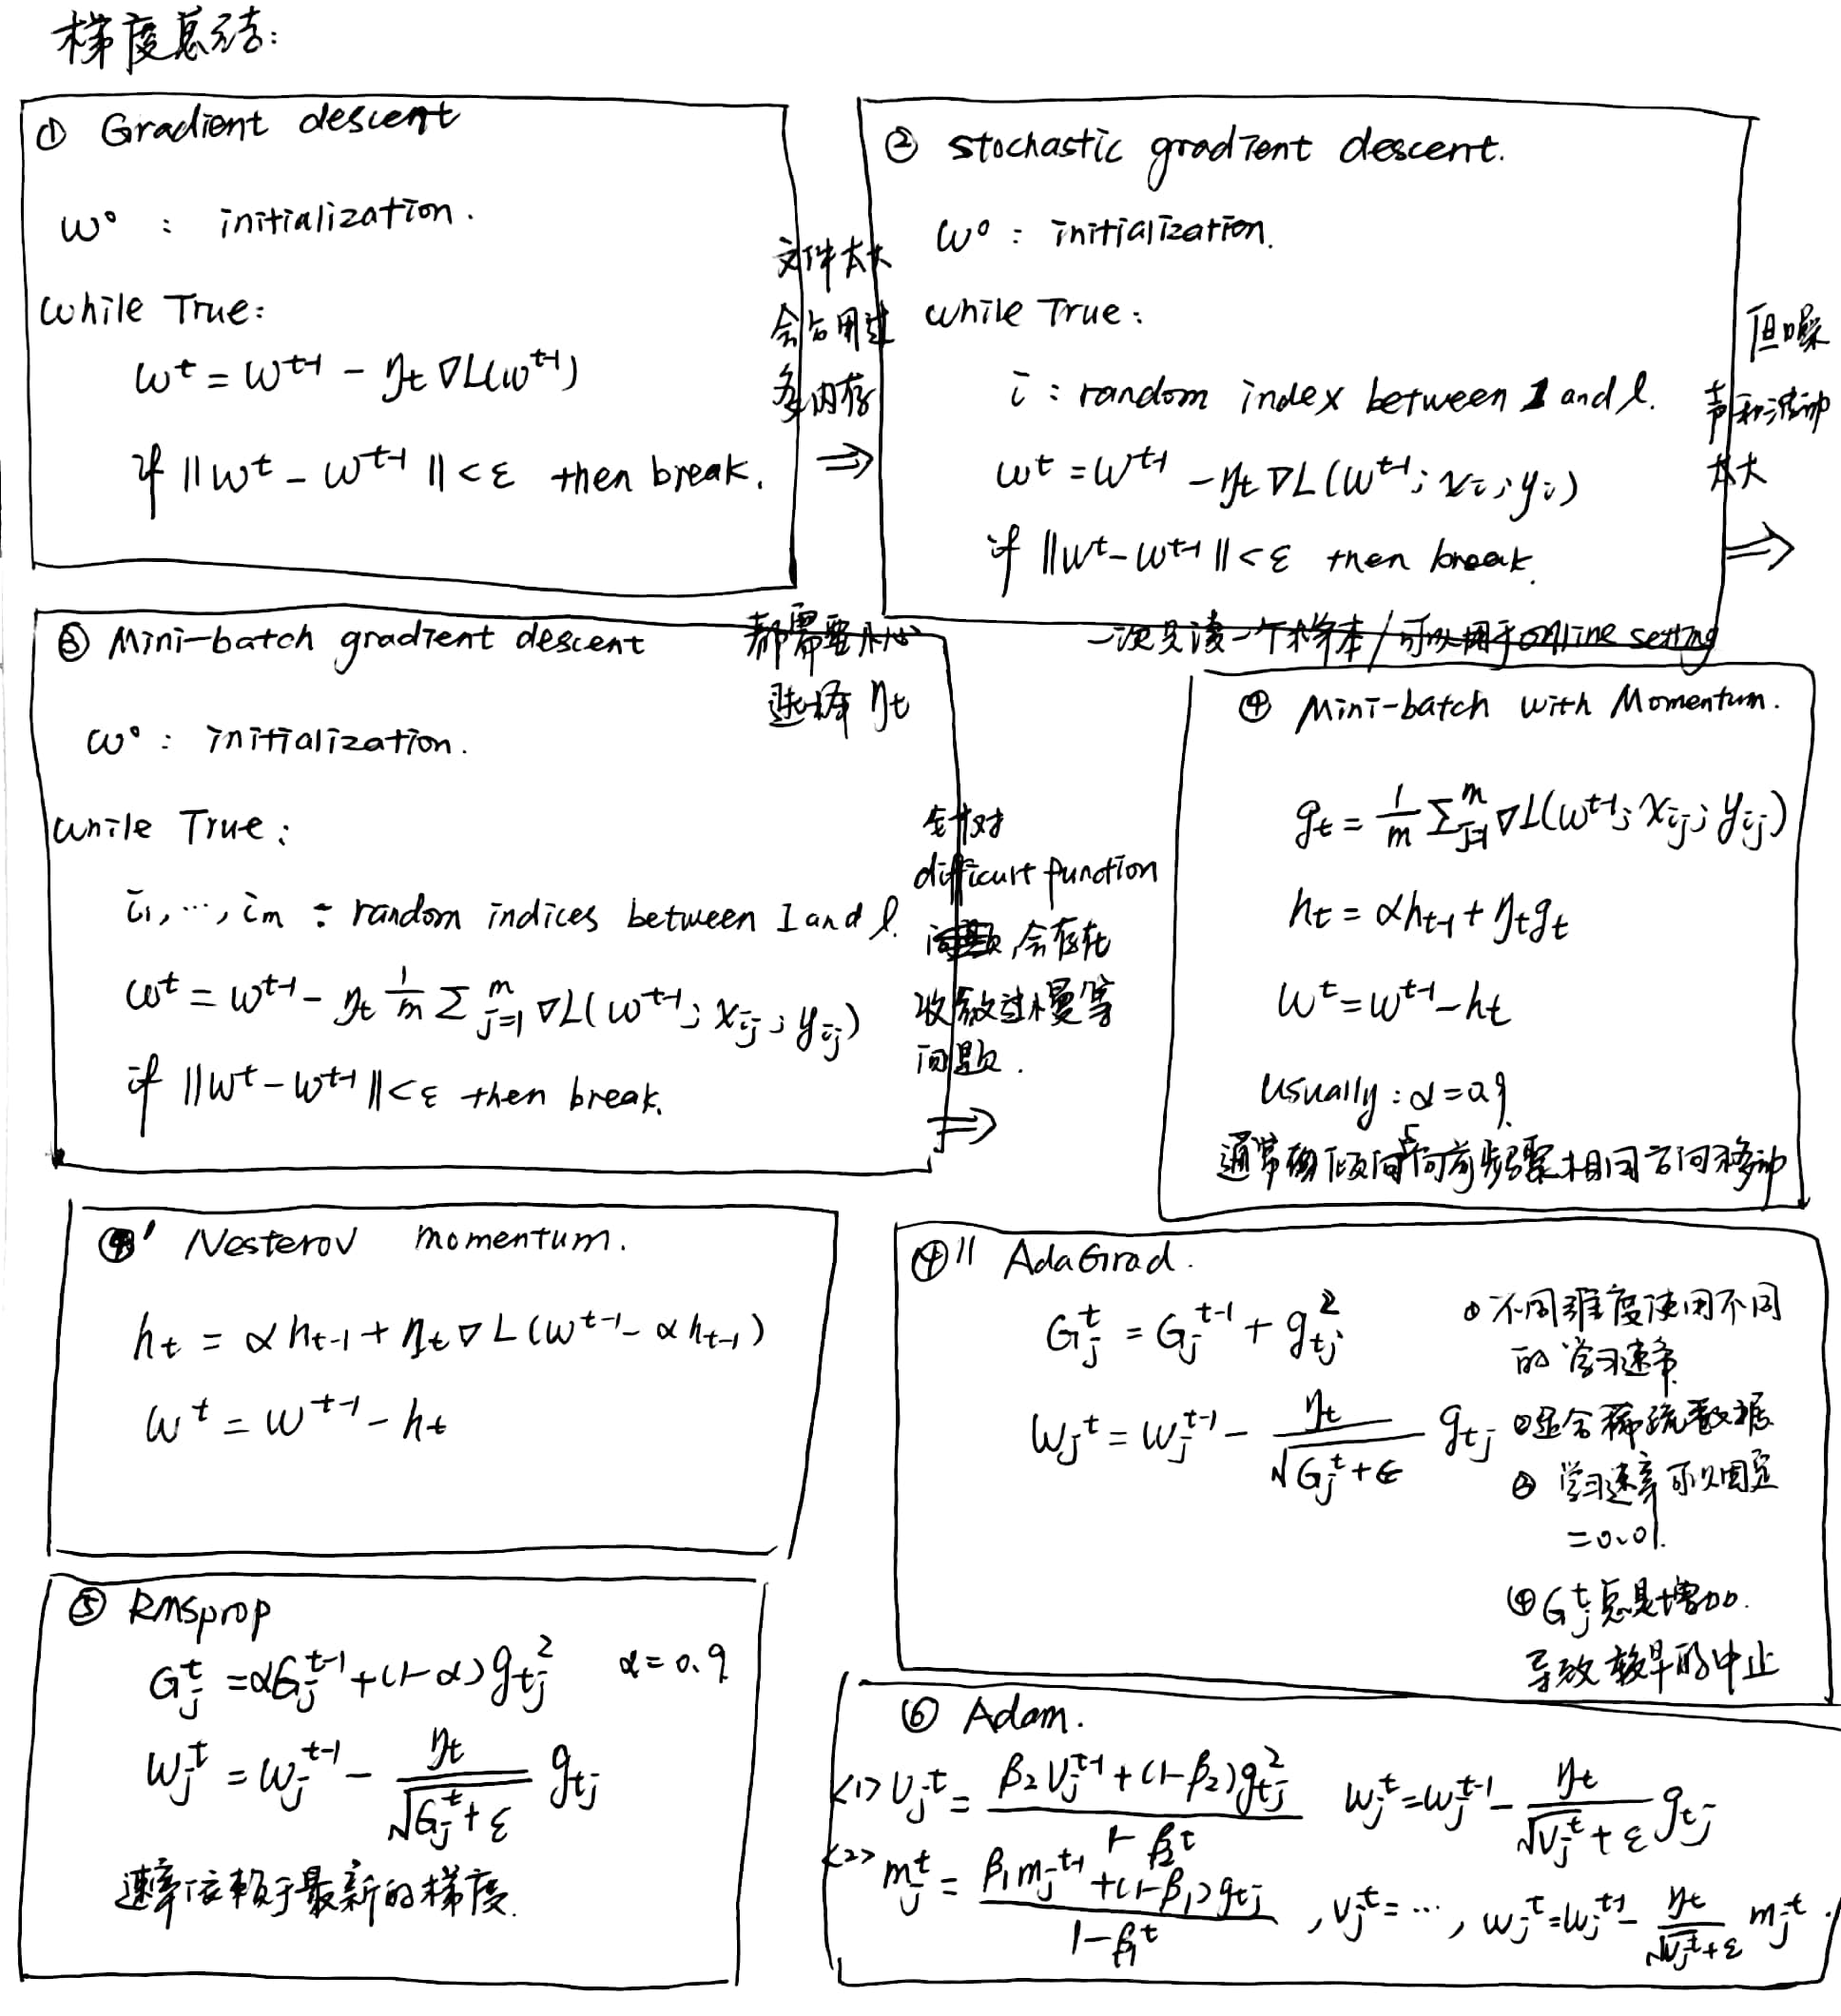 梯度总结:
① Gradient descent
w⁰ : initialization.
while True:
wᵗ = wᵗ⁻¹ - ηₜ ∇L(wᵗ⁻¹)
if ||wᵗ - wᵗ⁻¹|| < ε then break.
文件太大
会占用过
多内存
⇒
② stochastic gradient descent.
w⁰ : initialization.
while True:
i : random index between 1 and l.
wᵗ = wᵗ⁻¹ - ηₜ ∇L(wᵗ⁻¹; xᵢ; yᵢ)
if ||wᵗ - wᵗ⁻¹|| < ε then break.
一次只读一个样本/可以用于online setting
但噪
声和波动
太大
⇒
③ Mini-batch gradient descent
w⁰ : initialization.
while True:
i₁, ⋯, iₘ : random indices between 1 and l.
wᵗ = wᵗ⁻¹ - ηₜ 1/m Σⱼ₌₁ᵐ ∇L(wᵗ⁻¹; x_{ij}; y_{ij})
if ||wᵗ - wᵗ⁻¹|| < ε then break.
都需要小心
选择 ηₜ
针对
difficurt function
问题,会存在
收敛过慢等
问题.
⇒
④ Mini-batch with Momentum.
gₜ = 1/m Σⱼ₌₁ᵐ ∇L(wᵗ⁻¹; x_{ij}; y_{ij})
hₜ = αhₜ₋₁ + ηₜgₜ
wᵗ = wᵗ⁻¹ - hₜ
usually : α = 0.9
通常倾向与前步骤相同方向移动
④' Nesterov momentum.
hₜ = αhₜ₋₁ + ηₜ∇L(wᵗ⁻¹ - αhₜ₋₁)
wᵗ = wᵗ⁻¹ - hₜ
④'' AdaGrad.
Gⱼᵗ = Gⱼᵗ⁻¹ + g²_{tj}
wⱼᵗ = wⱼᵗ⁻¹ - ηₜ/√(Gⱼᵗ + ε) g_{tj}
① 不同维度使用不同
的学习速率
② 适合稀疏数据
③ 学习速率可以固定
=0.01.
④ Gⱼᵗ总是增加.
导致较早的中止
⑤ Rmsprop
Gⱼᵗ = αGⱼᵗ⁻¹ + (1-α)g²_{tj} α = 0.9
wⱼᵗ = wⱼᵗ⁻¹ - ηₜ/√(Gⱼᵗ + ε) g_{tj}
速率依赖于最新的梯度.
⑥ Adam.
<1> vⱼᵗ = (β₂vⱼᵗ⁻¹ + (1-β₂)g²_{tj})/(1-β₂ᵗ) wⱼᵗ = wⱼᵗ⁻¹ - ηₜ/(√vⱼᵗ + ε) g_{tj}
<2> mⱼᵗ = (β₁mⱼᵗ⁻¹ + (1-β₁)g_{tj})/(1-β₁ᵗ) , vⱼᵗ = ⋯, wⱼᵗ = wⱼᵗ⁻¹ - ηₜ/(√vⱼᵗ + ε) mⱼᵗ.